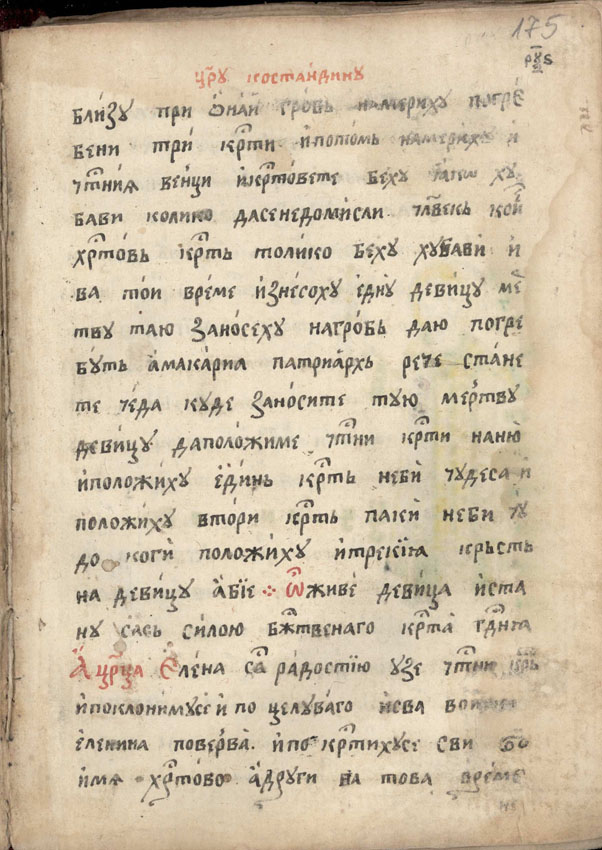 175
црⷭ҇ꙋ костандинꙋ
рⷪ҇ꙋѕ
бли́зꙋ при ѡ҆наи́ гробь намерихꙋ погре
бени три́ крⷭ҇ти и҆потомь намерихꙋ и҆
чтⷭ҇ниѧ венци и҆крⷭ҇товете бехꙋ тако хꙋ
бави колико дасенедомисли чл҃векь кои́
хрⷭ҇товь крⷭ҇ть толико бехꙋ хꙋбави и҆
ва тои време и҆знесохꙋ е҆днꙋ девицꙋ мрⷮе
твꙋ таю зано́сехꙋ нагробь даю погре
бꙋть а҆макарїа патриархь рече ста́не
те чѐда кꙋде зано́сите тꙋю мертвꙋ
девицꙋ даполо́жиме чтⷭ҇ни крⷭ҇ти наню
и҆положи́хꙋ е҆ди́нь крⷭ҇ть неби чꙋдеса и҆
положи́хꙋ втори крⷭ҇ть паки неби чꙋ
до коги̇ положи́хꙋ и҆трекїꙗ крьсть
на девицꙋ а҆бїе ѿживе девица и҆ста
нꙋ сась силою бжⷭ҇твенаго крⷭ҇та гдⷭ҇нꙗ
А҆ црⷭ҇ца Елена са радостїю ꙋзе чтⷭ҇ни крⷭ҇ть
и҆поклонимꙋсе и҆ по целꙋваго и҆сва
еленина поверва. и҆по крⷭ҇тихꙋсе сви во
и҆мѧ хрⷭ҇тово а҆дрꙋги на това време